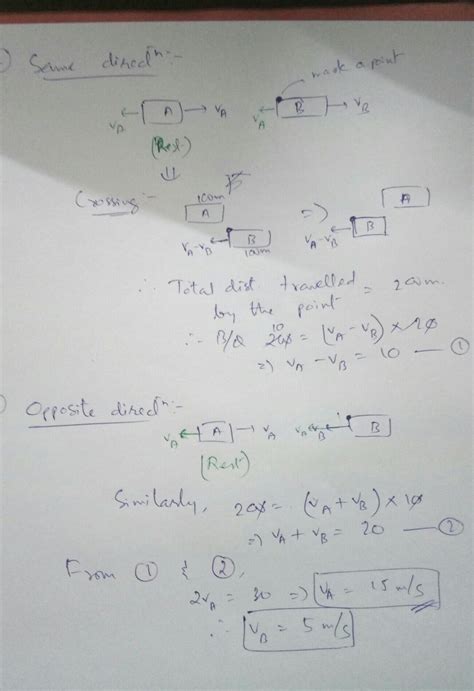 Same direcⁿ:-
mark a point
v_B A v_A v_A B v_B
(Rest)
⇓
Crossing:-
100m
A A
v_A-v_B B ⇒ v_A-v_B B
100m
∴ Total dist travelled by the point = 200m.
∴ B/Q 200 = (v_A - v_B) × 20
10
⇒ v_A - v_B = 10 — ①
Opposite direcⁿ:-
v_A A v_A v_A v_B B
(Rest)
Similarly, 200 = (v_A + v_B) × 10
⇒ v_A + v_B = 20 — ②
From ① & ②,
2v_A = 30 ⇒ v_A = 15 m/s
∴ v_B = 5 m/s